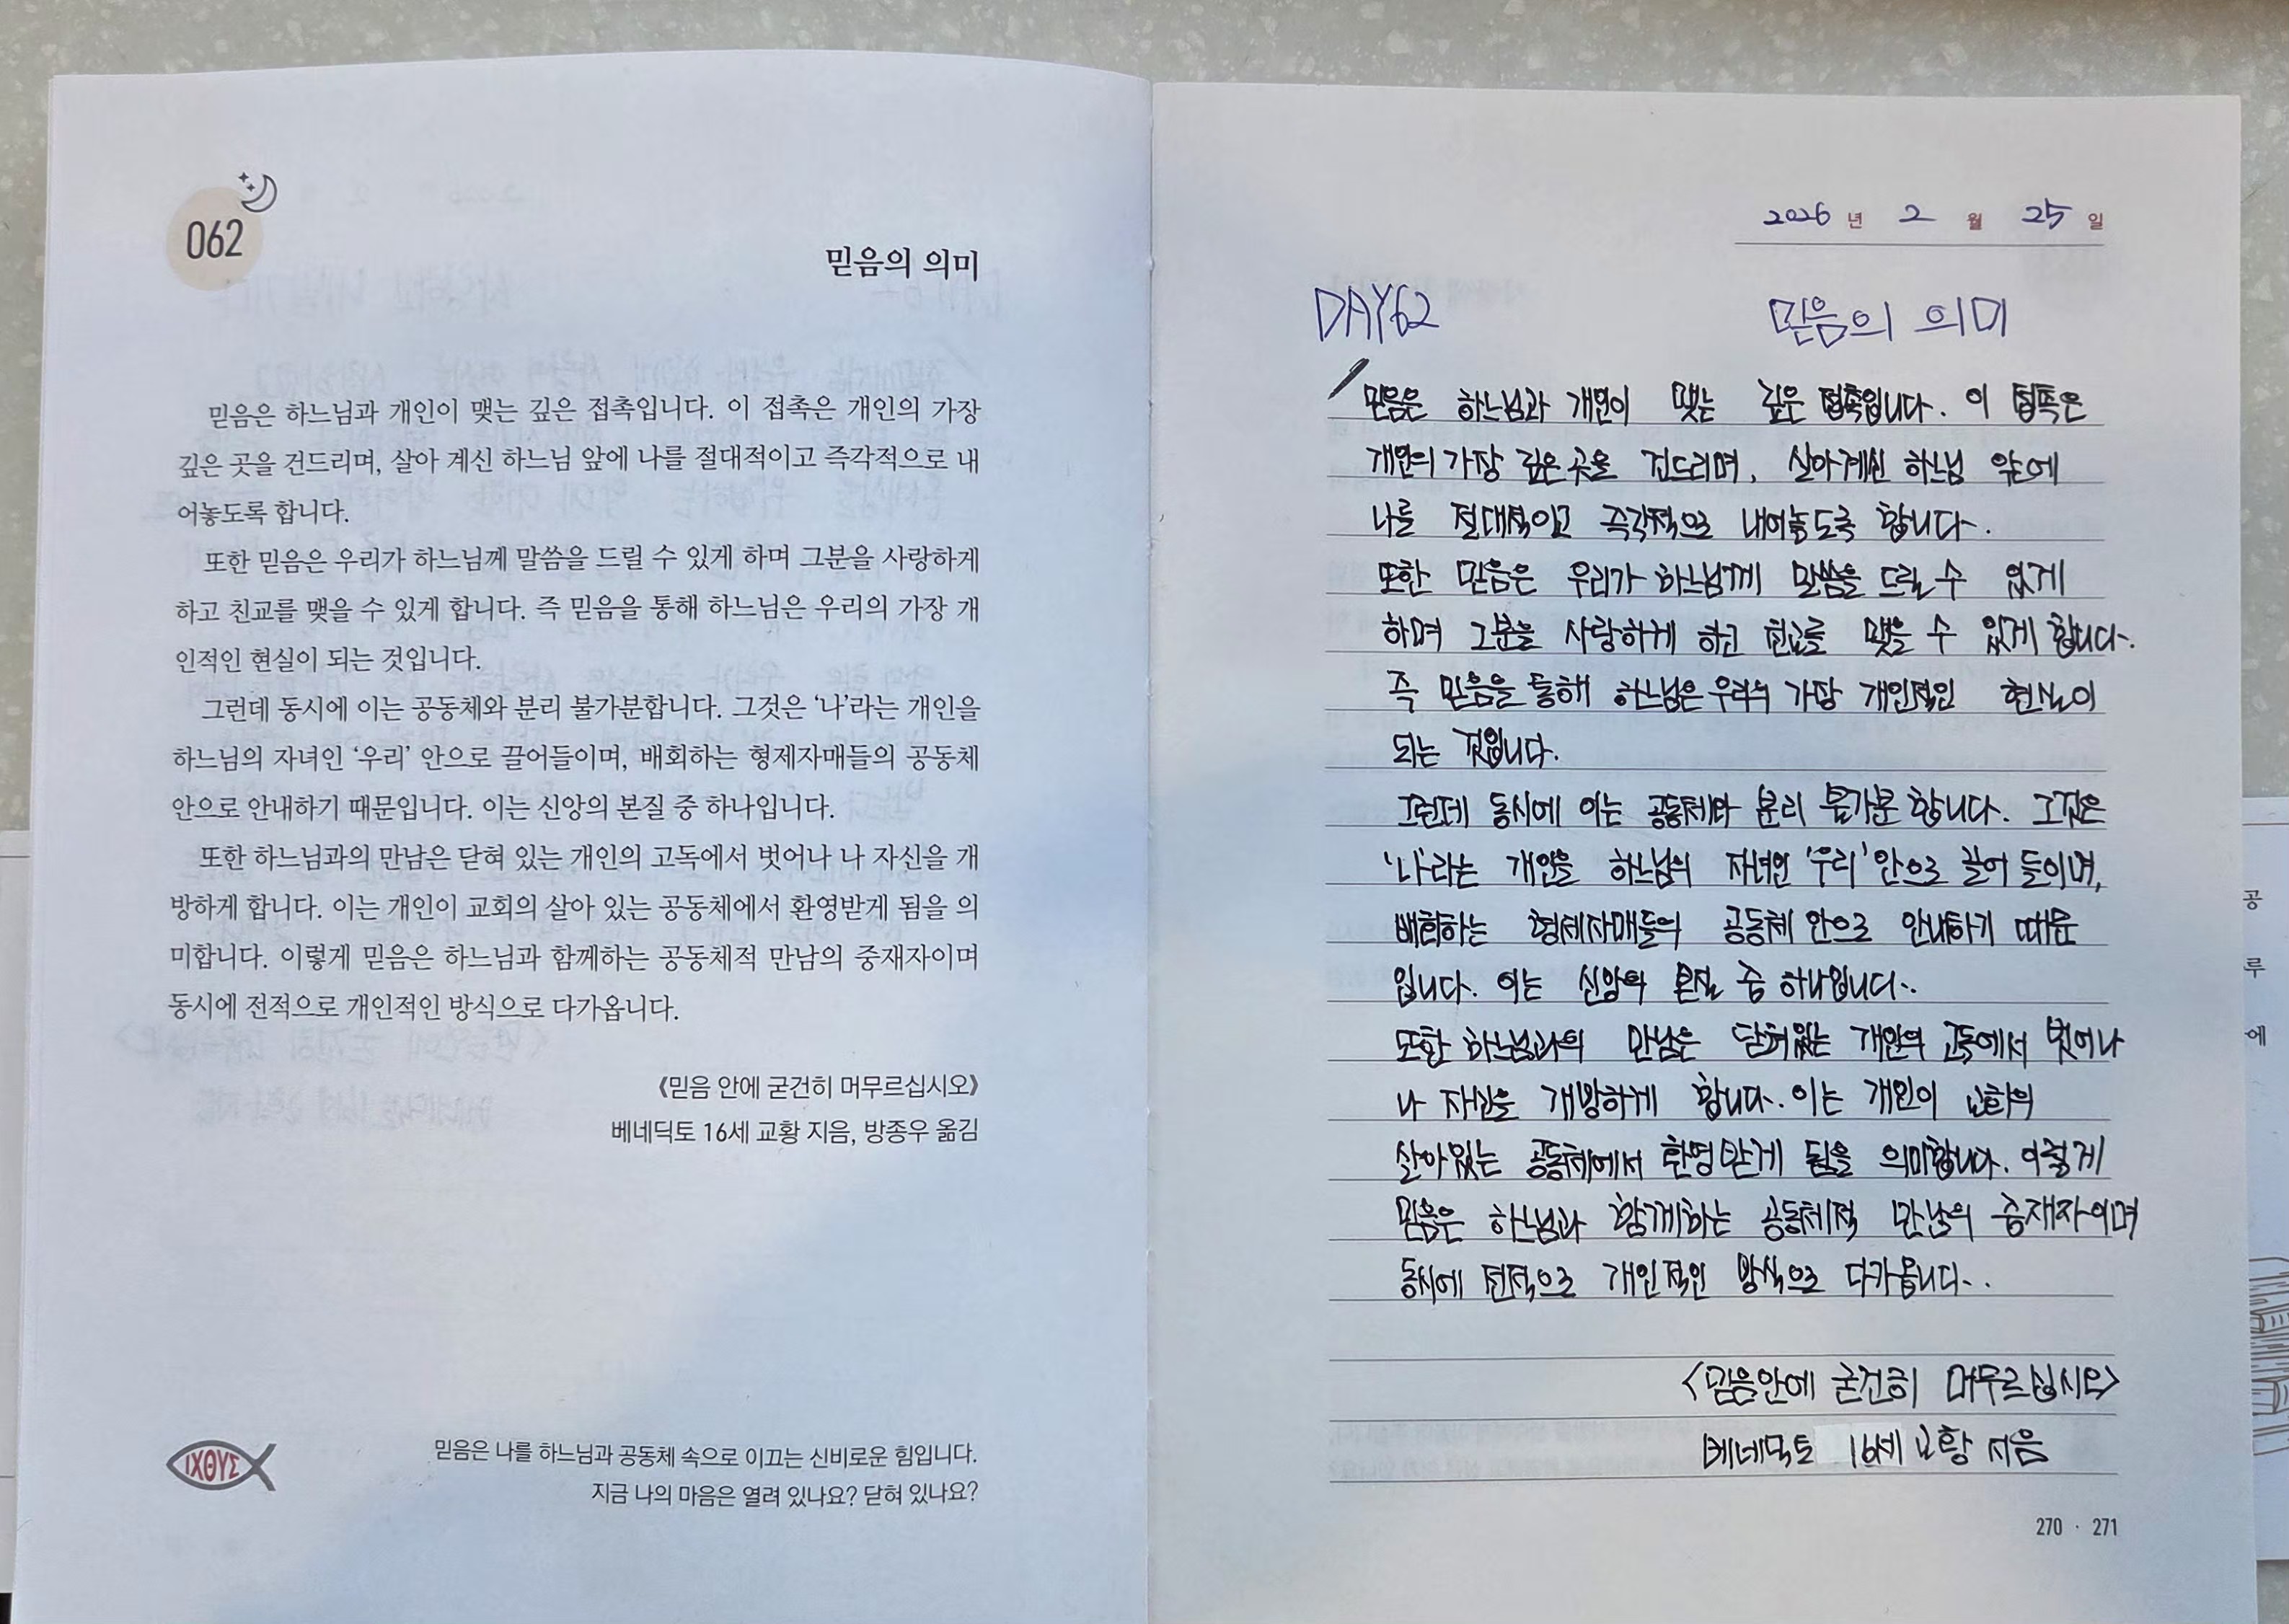 062
믿음의 의미
믿음은 하느님과 개인이 맺는 깊은 접촉입니다. 이 접촉은 개인의 가장
깊은 곳을 건드리며, 살아 계신 하느님 앞에 나를 절대적이고 즉각적으로 내
어놓도록 합니다.
또한 믿음은 우리가 하느님께 말씀을 드릴 수 있게 하며 그분을 사랑하게
하고 친교를 맺을 수 있게 합니다. 즉 믿음을 통해 하느님은 우리의 가장 개
인적인 현실이 되는 것입니다.
그런데 동시에 이는 공동체와 분리 불가분합니다. 그것은 ‘나’라는 개인을
하느님의 자녀인 ‘우리’ 안으로 끌어들이며, 배회하는 형제자매들의 공동체
안으로 안내하기 때문입니다. 이는 신앙의 본질 중 하나입니다.
또한 하느님과의 만남은 닫혀 있는 개인의 고독에서 벗어나 나 자신을 개
방하게 합니다. 이는 개인이 교회의 살아 있는 공동체에서 환영받게 됨을 의
미합니다. 이렇게 믿음은 하느님과 함께하는 공동체적 만남의 중재자이며
동시에 전적으로 개인적인 방식으로 다가옵니다.
《믿음 안에 굳건히 머무르십시오》
베네딕토 16세 교황 지음, 방종우 옮김
ΙΧΘΥΣ
믿음은 나를 하느님과 공동체 속으로 이끄는 신비로운 힘입니다.
지금 나의 마음은 열려 있나요? 닫혀 있나요?
2026 년 2 월 25 일
DAY62 믿음의 의미
믿음은 하느님과 개인이 맺는 깊은 접촉입니다. 이 접촉은
개인의 가장 깊은 곳을 건드리며, 살아계신 하느님 앞에
나를 절대적이고 즉각적으로 내어놓도록 합니다.
또한 믿음은 우리가 하느님께 말씀을 드릴 수 있게
하며 그분을 사랑하게 하고 친교를 맺을 수 있게 합니다.
즉 믿음을 통해 하느님은 우리의 가장 개인적인 현실이
되는 것입니다.
그런데 동시에 이는 공동체와 분리 불가분 합니다. 그것은
‘나’라는 개인을 하느님의 자녀인 ‘우리’ 안으로 끌어 들이며,
배회하는 형제자매들의 공동체 안으로 안내하기 때문
입니다. 이는 신앙의 본질 중 하나입니다.
또한 하느님과의 만남은 닫혀있는 개인의 고독에서 벗어나
나 자신을 개방하게 합니다. 이는 개인이 교회의
살아있는 공동체에서 환영받게 됨을 의미합니다. 이렇게
믿음은 하느님과 함께하는 공동체적 만남의 중재자이며
동시에 전적으로 개인적인 방식으로 다가옵니다.
<믿음안에 굳건히 머무르십시오>
베네딕토 16세 교황 지음
270 · 271
공
루
에